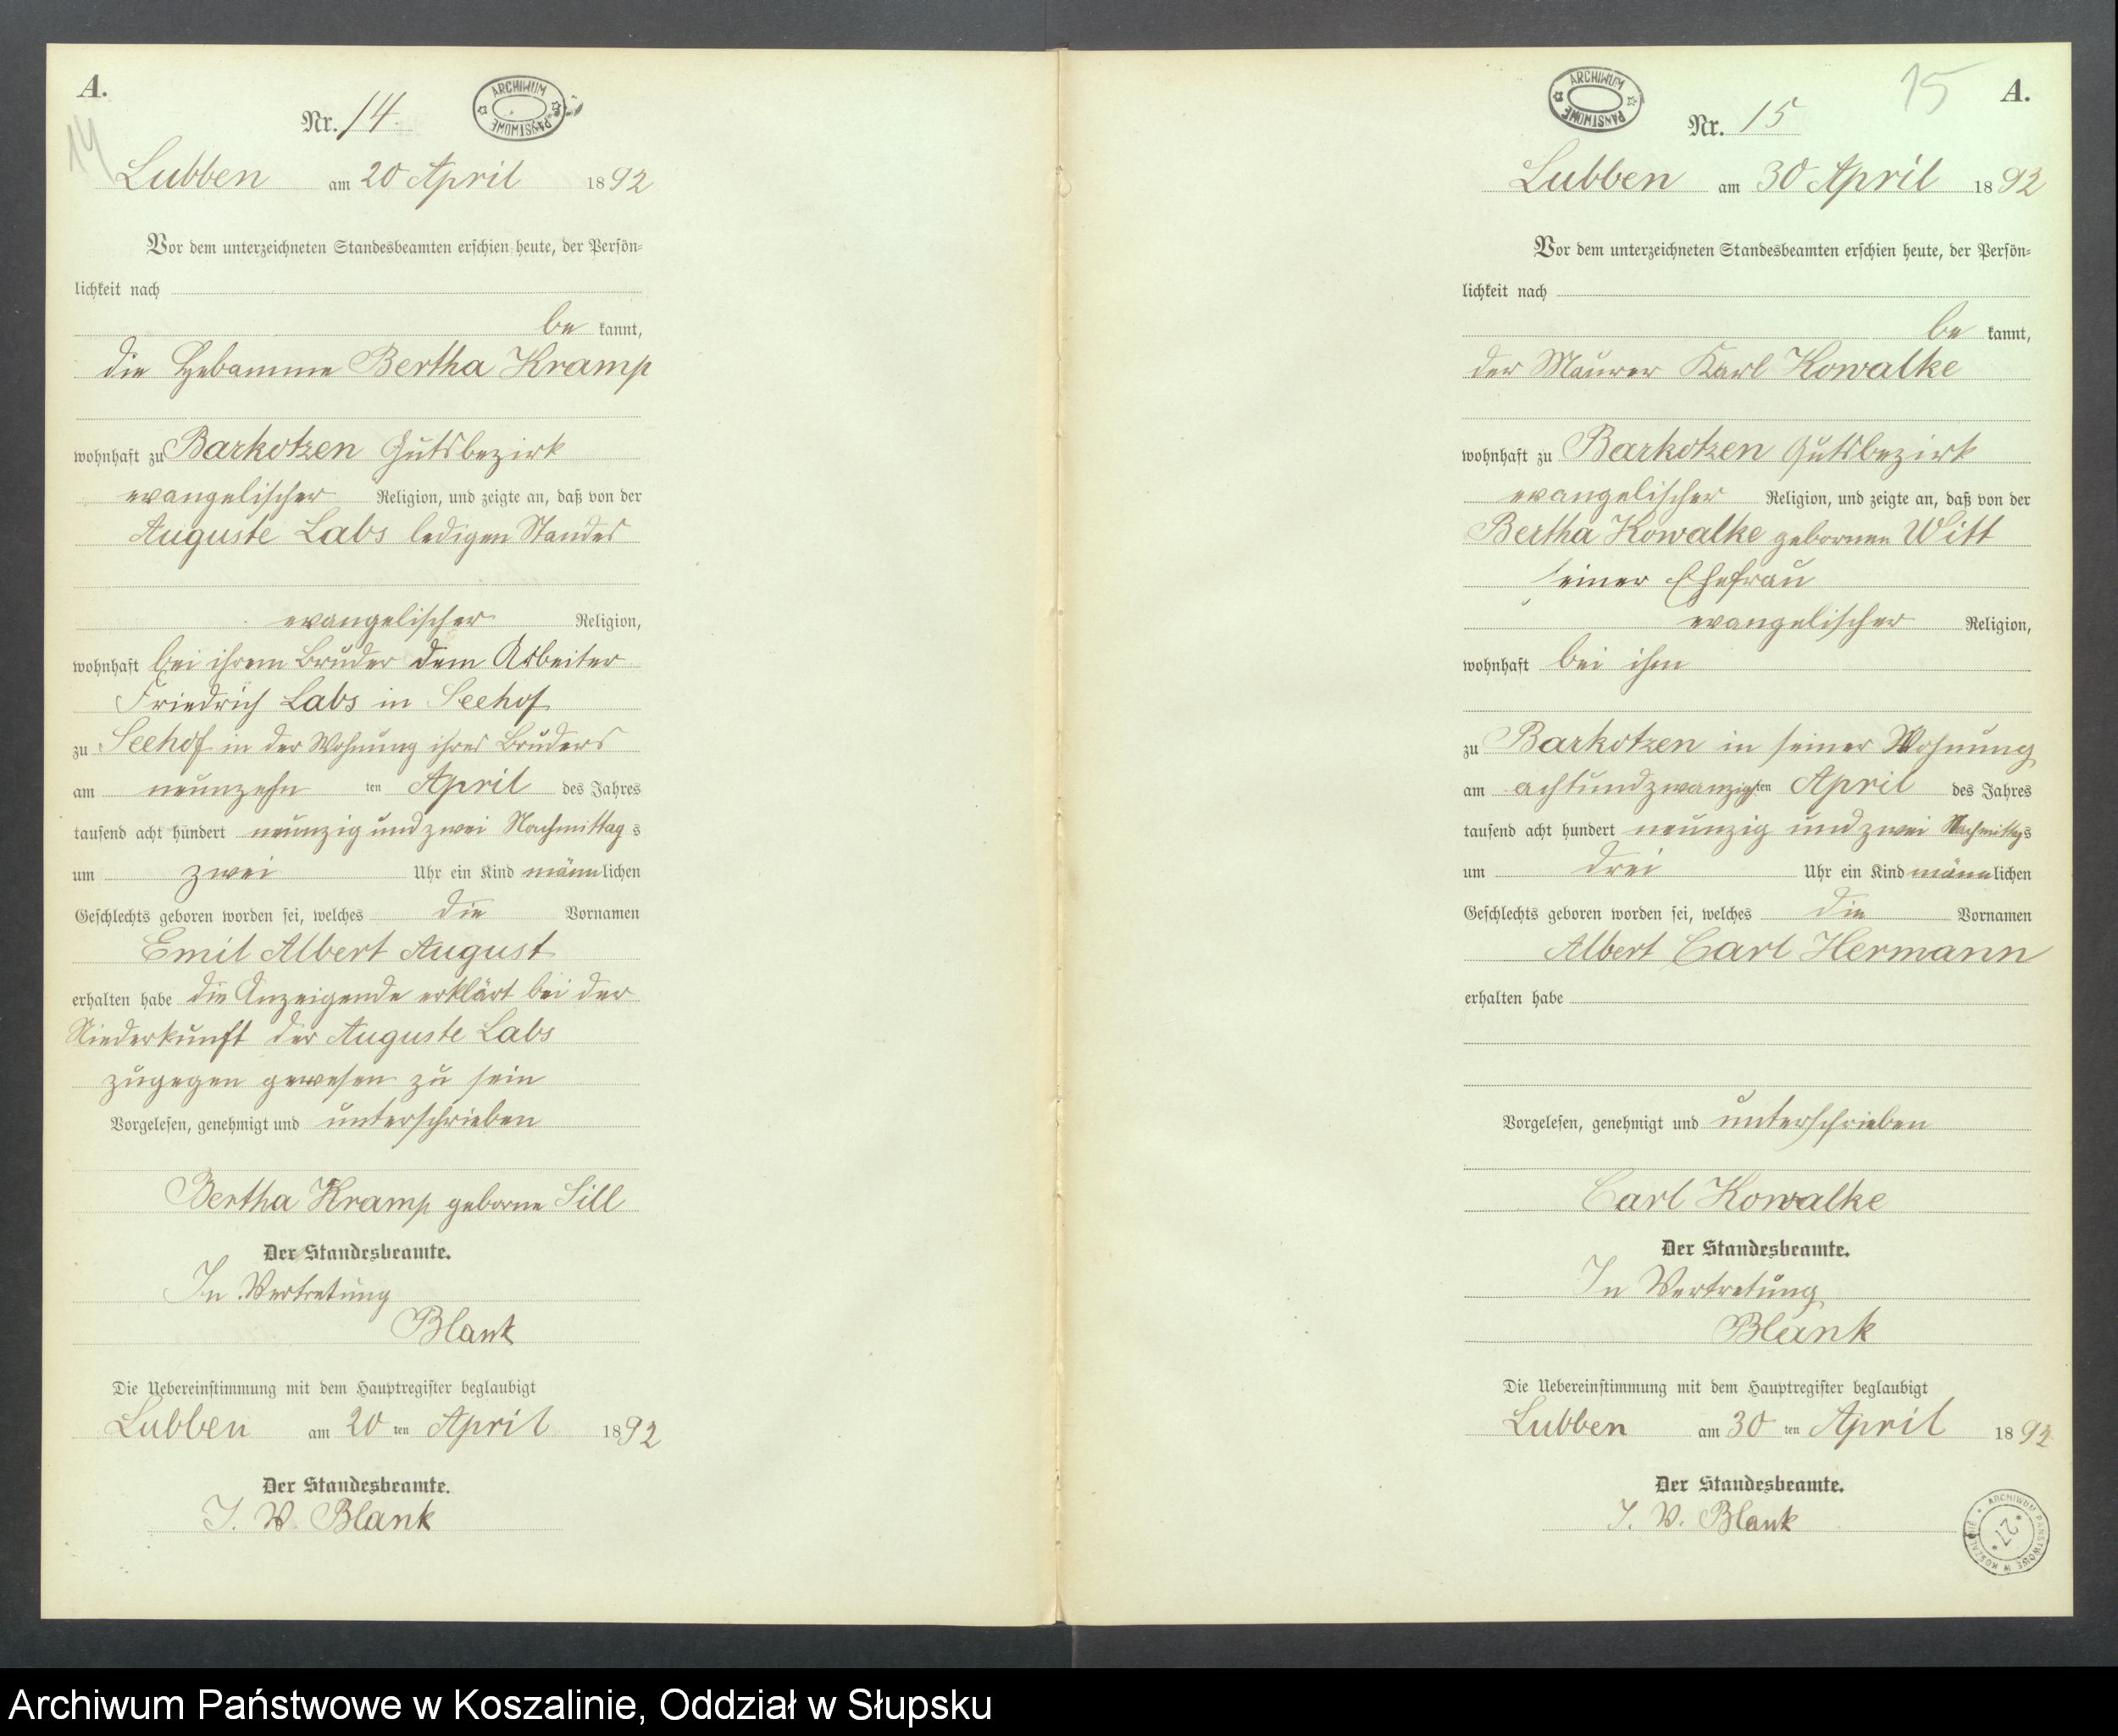 A.
14
Nr. 14.
ARCHIWUM PAŃSTWOWE
Lubben am 20 April 1892
Vor dem unterzeichneten Standesbeamten erschien heute, der Persön=
lichkeit nach
be kannt,
die Hebamme Bertha Kramp
wohnhaft zu Barkotzen Gutsbezirk
evangelischer Religion, und zeigte an, daß von der
Auguste Labs ledigen Standes
evangelischer Religion,
wohnhaft bei ihrem Bruder dem Arbeiter
Friedrich Labs in Seehof
zu Seehof in der Wohnung ihres Bruders
am neunzehn ten April des Jahres
tausend acht hundert neunzig und zwei Nachmittag s
um zwei Uhr ein Kind männlichen
Geschlechts geboren worden sei, welches die Vornamen
Emil Albert August
erhalten habe die Anzeigende erklärt bei der
Niederkunft der Auguste Labs
zugegen gewesen zu sein
Vorgelesen, genehmigt und unterschrieben
Bertha Kramp geborne Sill
Der Standesbeamte.
In Vertretung
Blank
Die Uebereinstimmung mit dem Hauptregister beglaubigt
Lubben am 20 ten April 1892
Der Standesbeamte.
I. V. Blank
A.
15
Nr. 15
ARCHIWUM PAŃSTWOWE
Lubben am 30 April 1892
Vor dem unterzeichneten Standesbeamten erschien heute, der Persön=
lichkeit nach
be kannt,
der Maurer Karl Kowalke
wohnhaft zu Barkotzen Gutsbezirk
evangelischer Religion, und zeigte an, daß von der
Bertha Kowalke gebornen Witt
seiner Ehefrau
evangelischer Religion,
wohnhaft bei ihm
zu Barkotzen in seiner Wohnung
am achtundzwanzigsten April des Jahres
tausend acht hundert neunzig und zwei Nachmittags
um drei Uhr ein Kind männlichen
Geschlechts geboren worden sei, welches die Vornamen
Albert Carl Hermann
erhalten habe
Vorgelesen, genehmigt und unterschrieben
Carl Kowalke
Der Standesbeamte.
In Vertretung
Blank
Die Uebereinstimmung mit dem Hauptregister beglaubigt
Lubben am 30 ten April 1892
Der Standesbeamte.
I. V. Blank
ARCHIWUM PAŃSTWOWE W KOSZALINIE * 27 *
Archiwum Państwowe w Koszalinie, Oddział w Słupsku